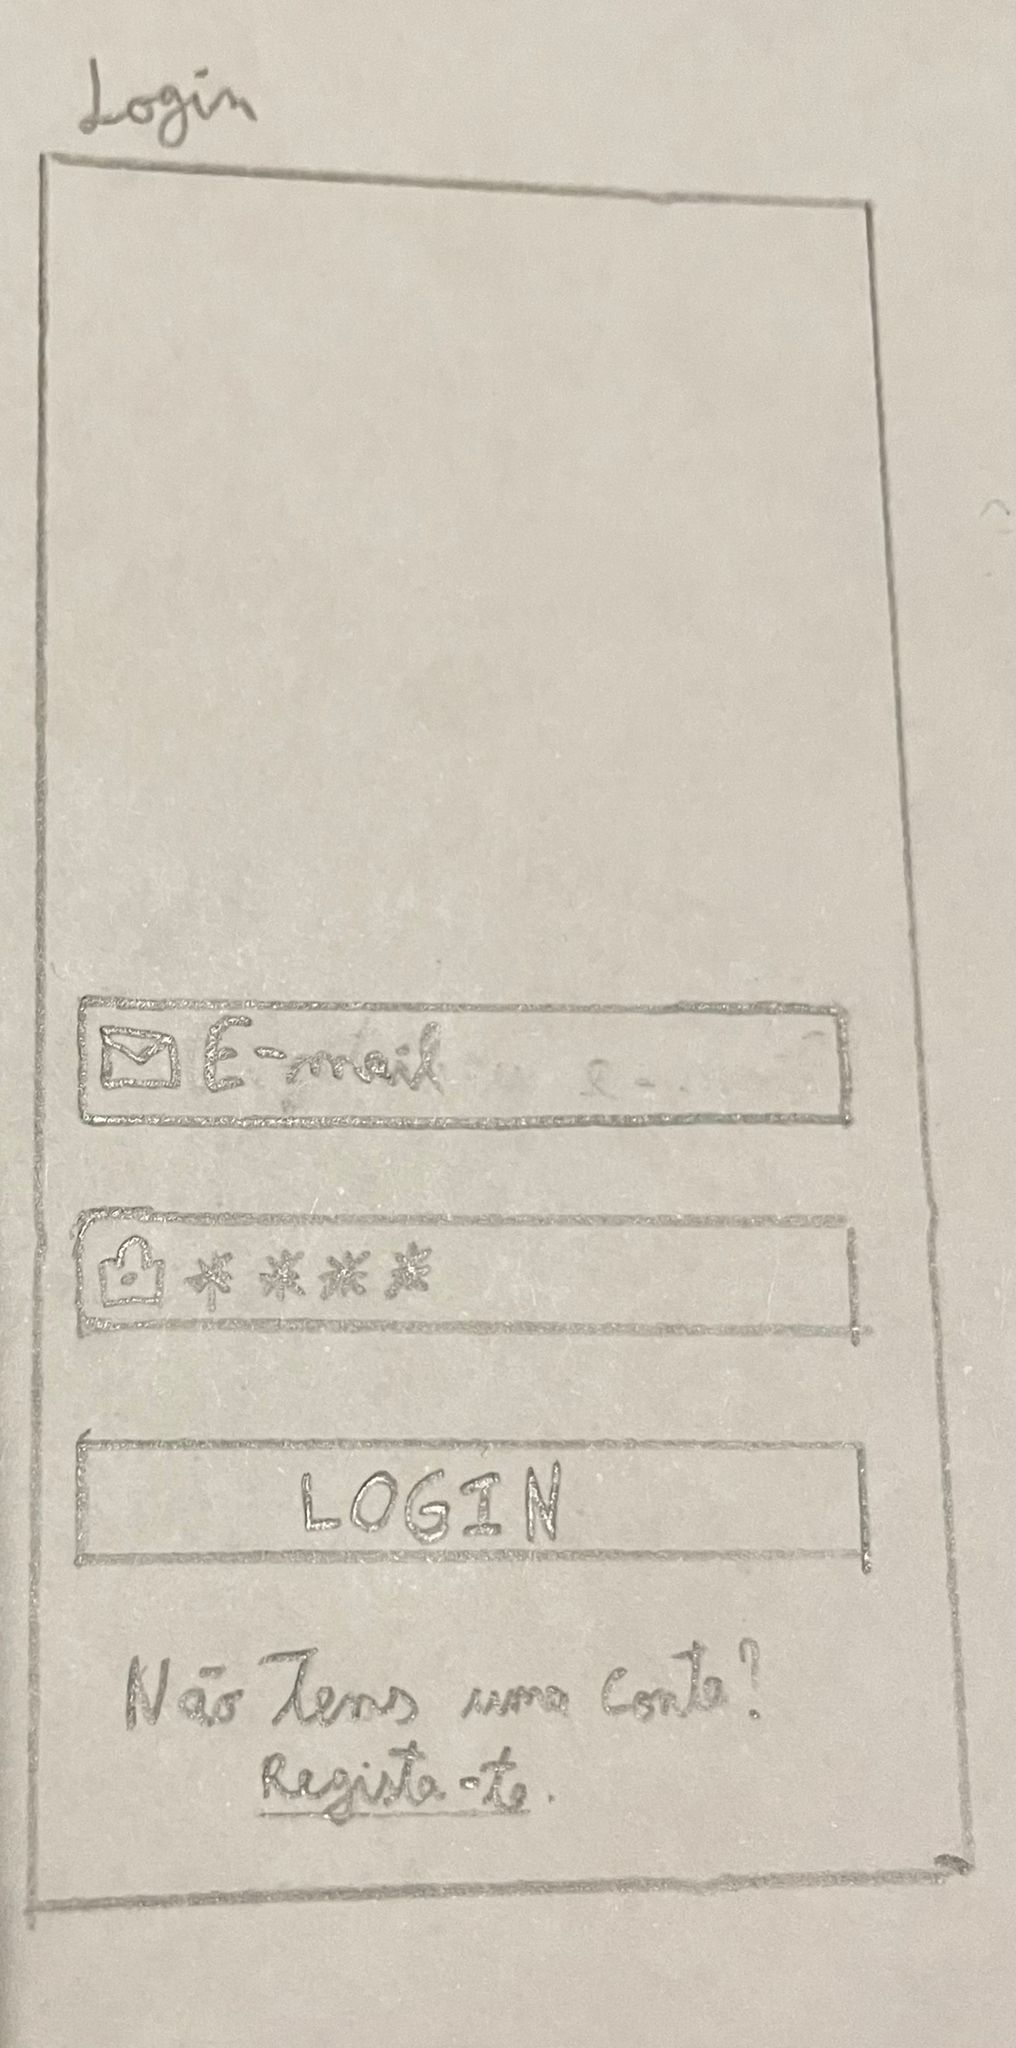 Login
E-mail
****
LOGIN
Não Tens uma conta?
Regista-te.